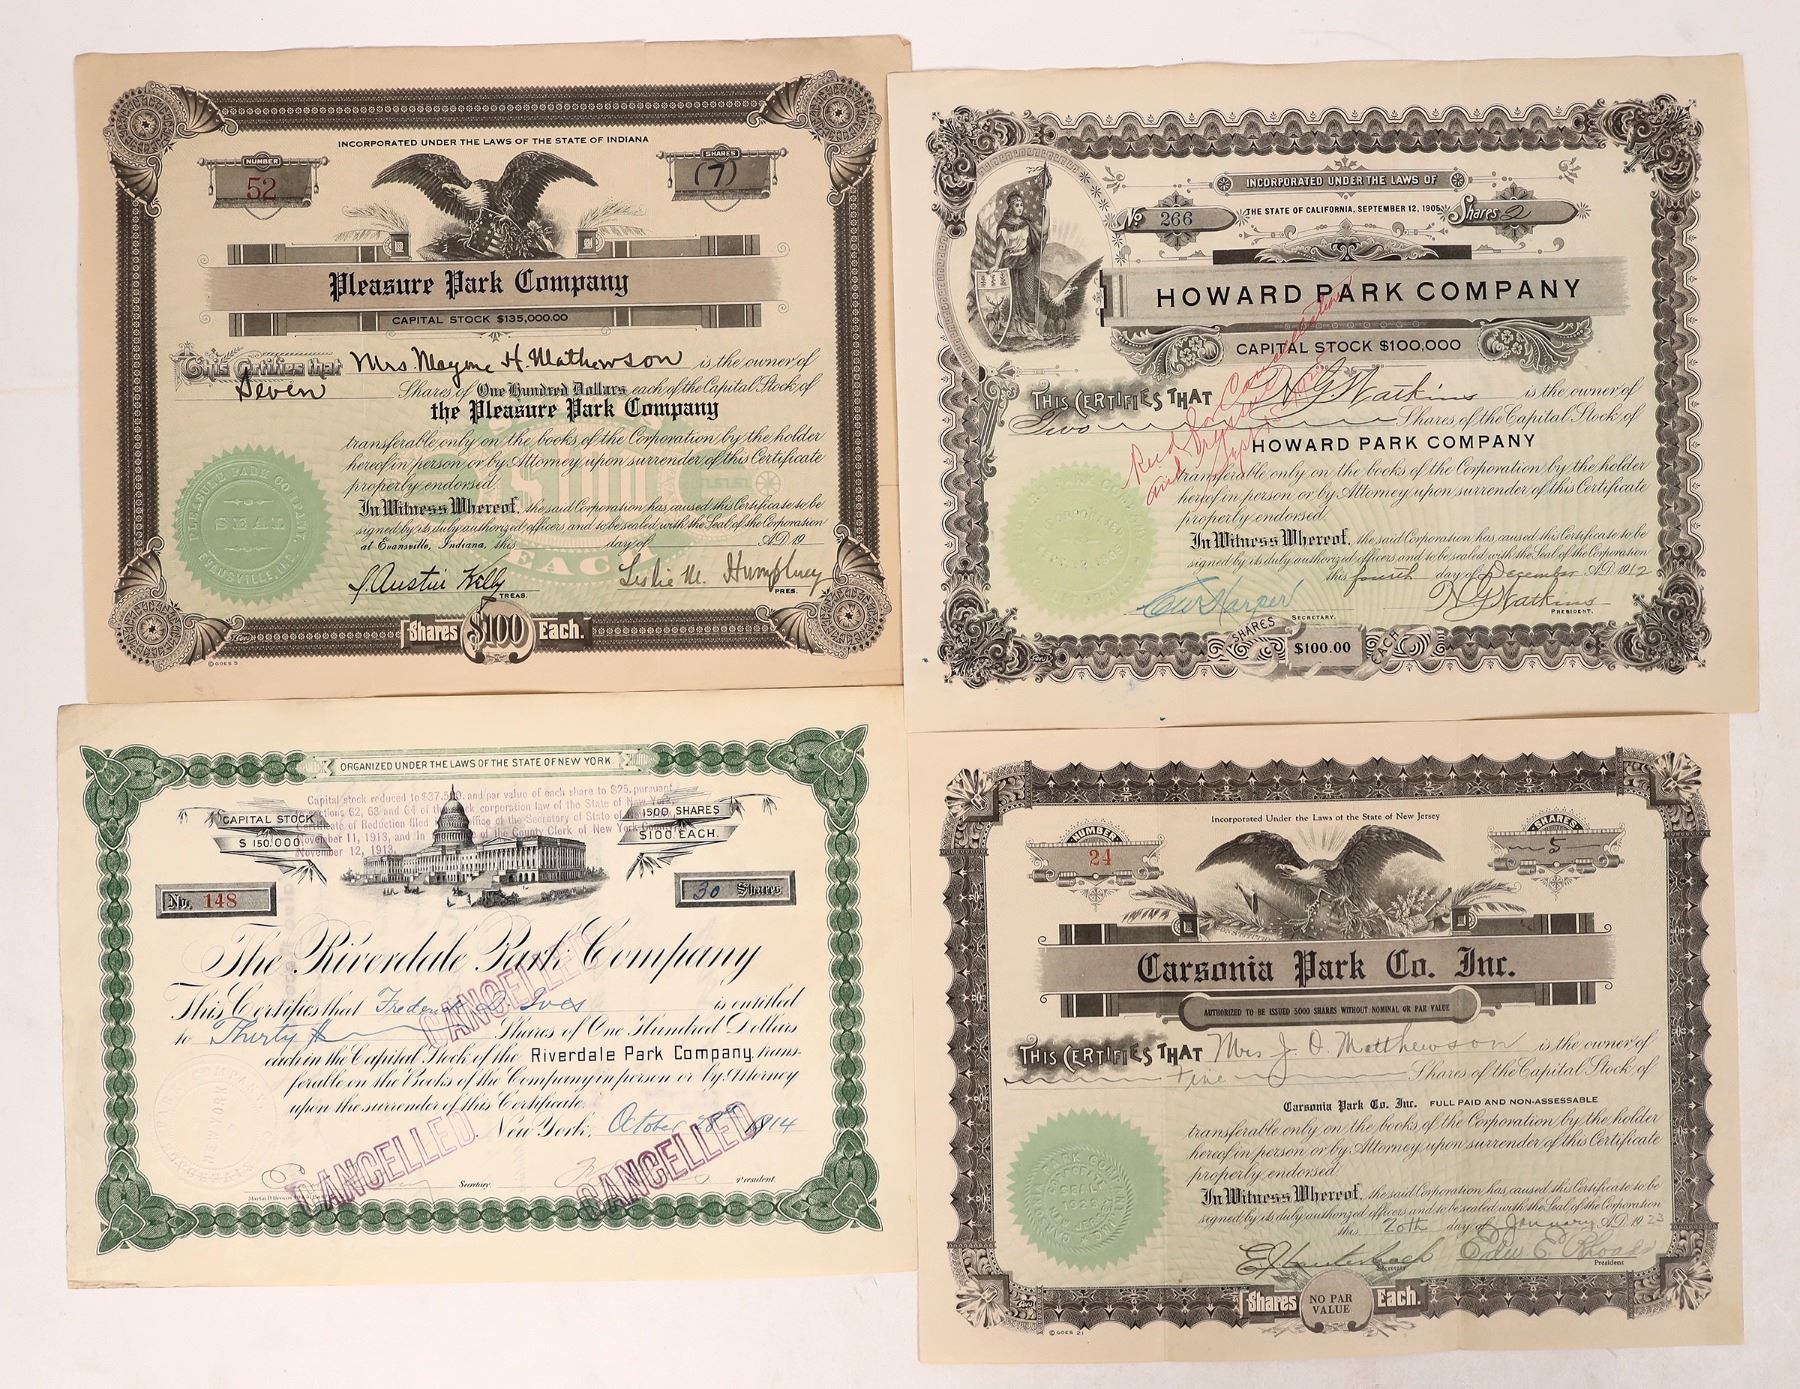 INCORPORATED UNDER THE LAWS OF THE STATE OF INDIANA
NUMBER
52
SHARES
(7)
Pleasure Park Company
CAPITAL STOCK $135,000.00
This Certifies that Mrs. Mayme H. Mathewson is the owner of
Seven Shares of One Hundred Dollars each of the Capital Stock of
the Pleasure Park Company
transferable only on the books of the Corporation by the holder
hereof in person or by Attorney upon surrender of this Certificate
properly endorsed.
In Witness Whereof, the said Corporation has caused this Certificate to be
signed by its duly authorized officers and to be sealed with the Seal of the Corporation
at Evansville, Indiana, this day of A.D. 19
$100
EACH
PLEASURE PARK COMPANY.
SEAL
EVANSVILLE, IND.
J. Austin Kelly
TREAS.
Leslie M. Humphrey
PRES.
Shares $100 Each.
© GOES 5
INCORPORATED UNDER THE LAWS OF
THE STATE OF CALIFORNIA, SEPTEMBER 12, 1905
No 266
Shares 2
HOWARD PARK COMPANY
CAPITAL STOCK $100,000
THIS CERTIFIES THAT H G Watkins is the owner of
Two Shares of the Capital Stock of
HOWARD PARK COMPANY
transferable only on the books of the Corporation by the holder
hereof in person or by Attorney upon surrender of this Certificate
properly endorsed.
In Witness Whereof, the said Corporation has caused this Certificate to be
signed by its duly authorized officers and to be sealed with the Seal of the Corporation
this fourth day of December A.D. 1912
Recd for Cancellation
and
CW Harper
SECRETARY.
H G Watkins
PRESIDENT.
SHARES $100.00 EACH
ORGANIZED UNDER THE LAWS OF THE STATE OF NEW YORK.
Capital stock reduced to $37,500, and par value of each share to $25, pursuant
62, 63 and 64 of the corporation law of the State of New York.
Certificate of Reduction filed office of the Secretary of State
November 11, 1913, and in of the County Clerk of New York County
November 12, 1913.
CAPITAL STOCK
$150,000
1500 SHARES
$100 EACH.
No. 148
30 Shares
The Riverdale Park Company
This Certifies that Frederick D. Ives is entitled
to Thirty Shares of One Hundred Dollars
each in the Capital Stock of the Riverdale Park Company, trans-
ferable on the Books of the Company in person or by Attorney
upon the surrender of this Certificate.
New York, October 28th 1914
CANCELLED
CANCELLED
CANCELLED
Secretary
President
Incorporated Under the Laws of the State of New Jersey
NUMBER
24
SHARES
5
Carsonia Park Co. Inc.
AUTHORIZED TO BE ISSUED 5000 SHARES WITHOUT NOMINAL OR PAR VALUE
THIS CERTIFIES THAT Mrs J. O. Matthewson is the owner of
Five Shares of the Capital Stock of
Carsonia Park Co. Inc. FULL PAID AND NON-ASSESSABLE
transferable only on the books of the Corporation by the holder
hereof in person or by Attorney upon surrender of this Certificate
properly endorsed.
In Witness Whereof, the said Corporation has caused this Certificate to be
signed by its duly authorized officers and to be sealed with the Seal of the Corporation
this 20th day of January A.D. 1923
Secretary
Edw E. Rhoads
President
Shares NO PAR VALUE Each.
© GOES 21